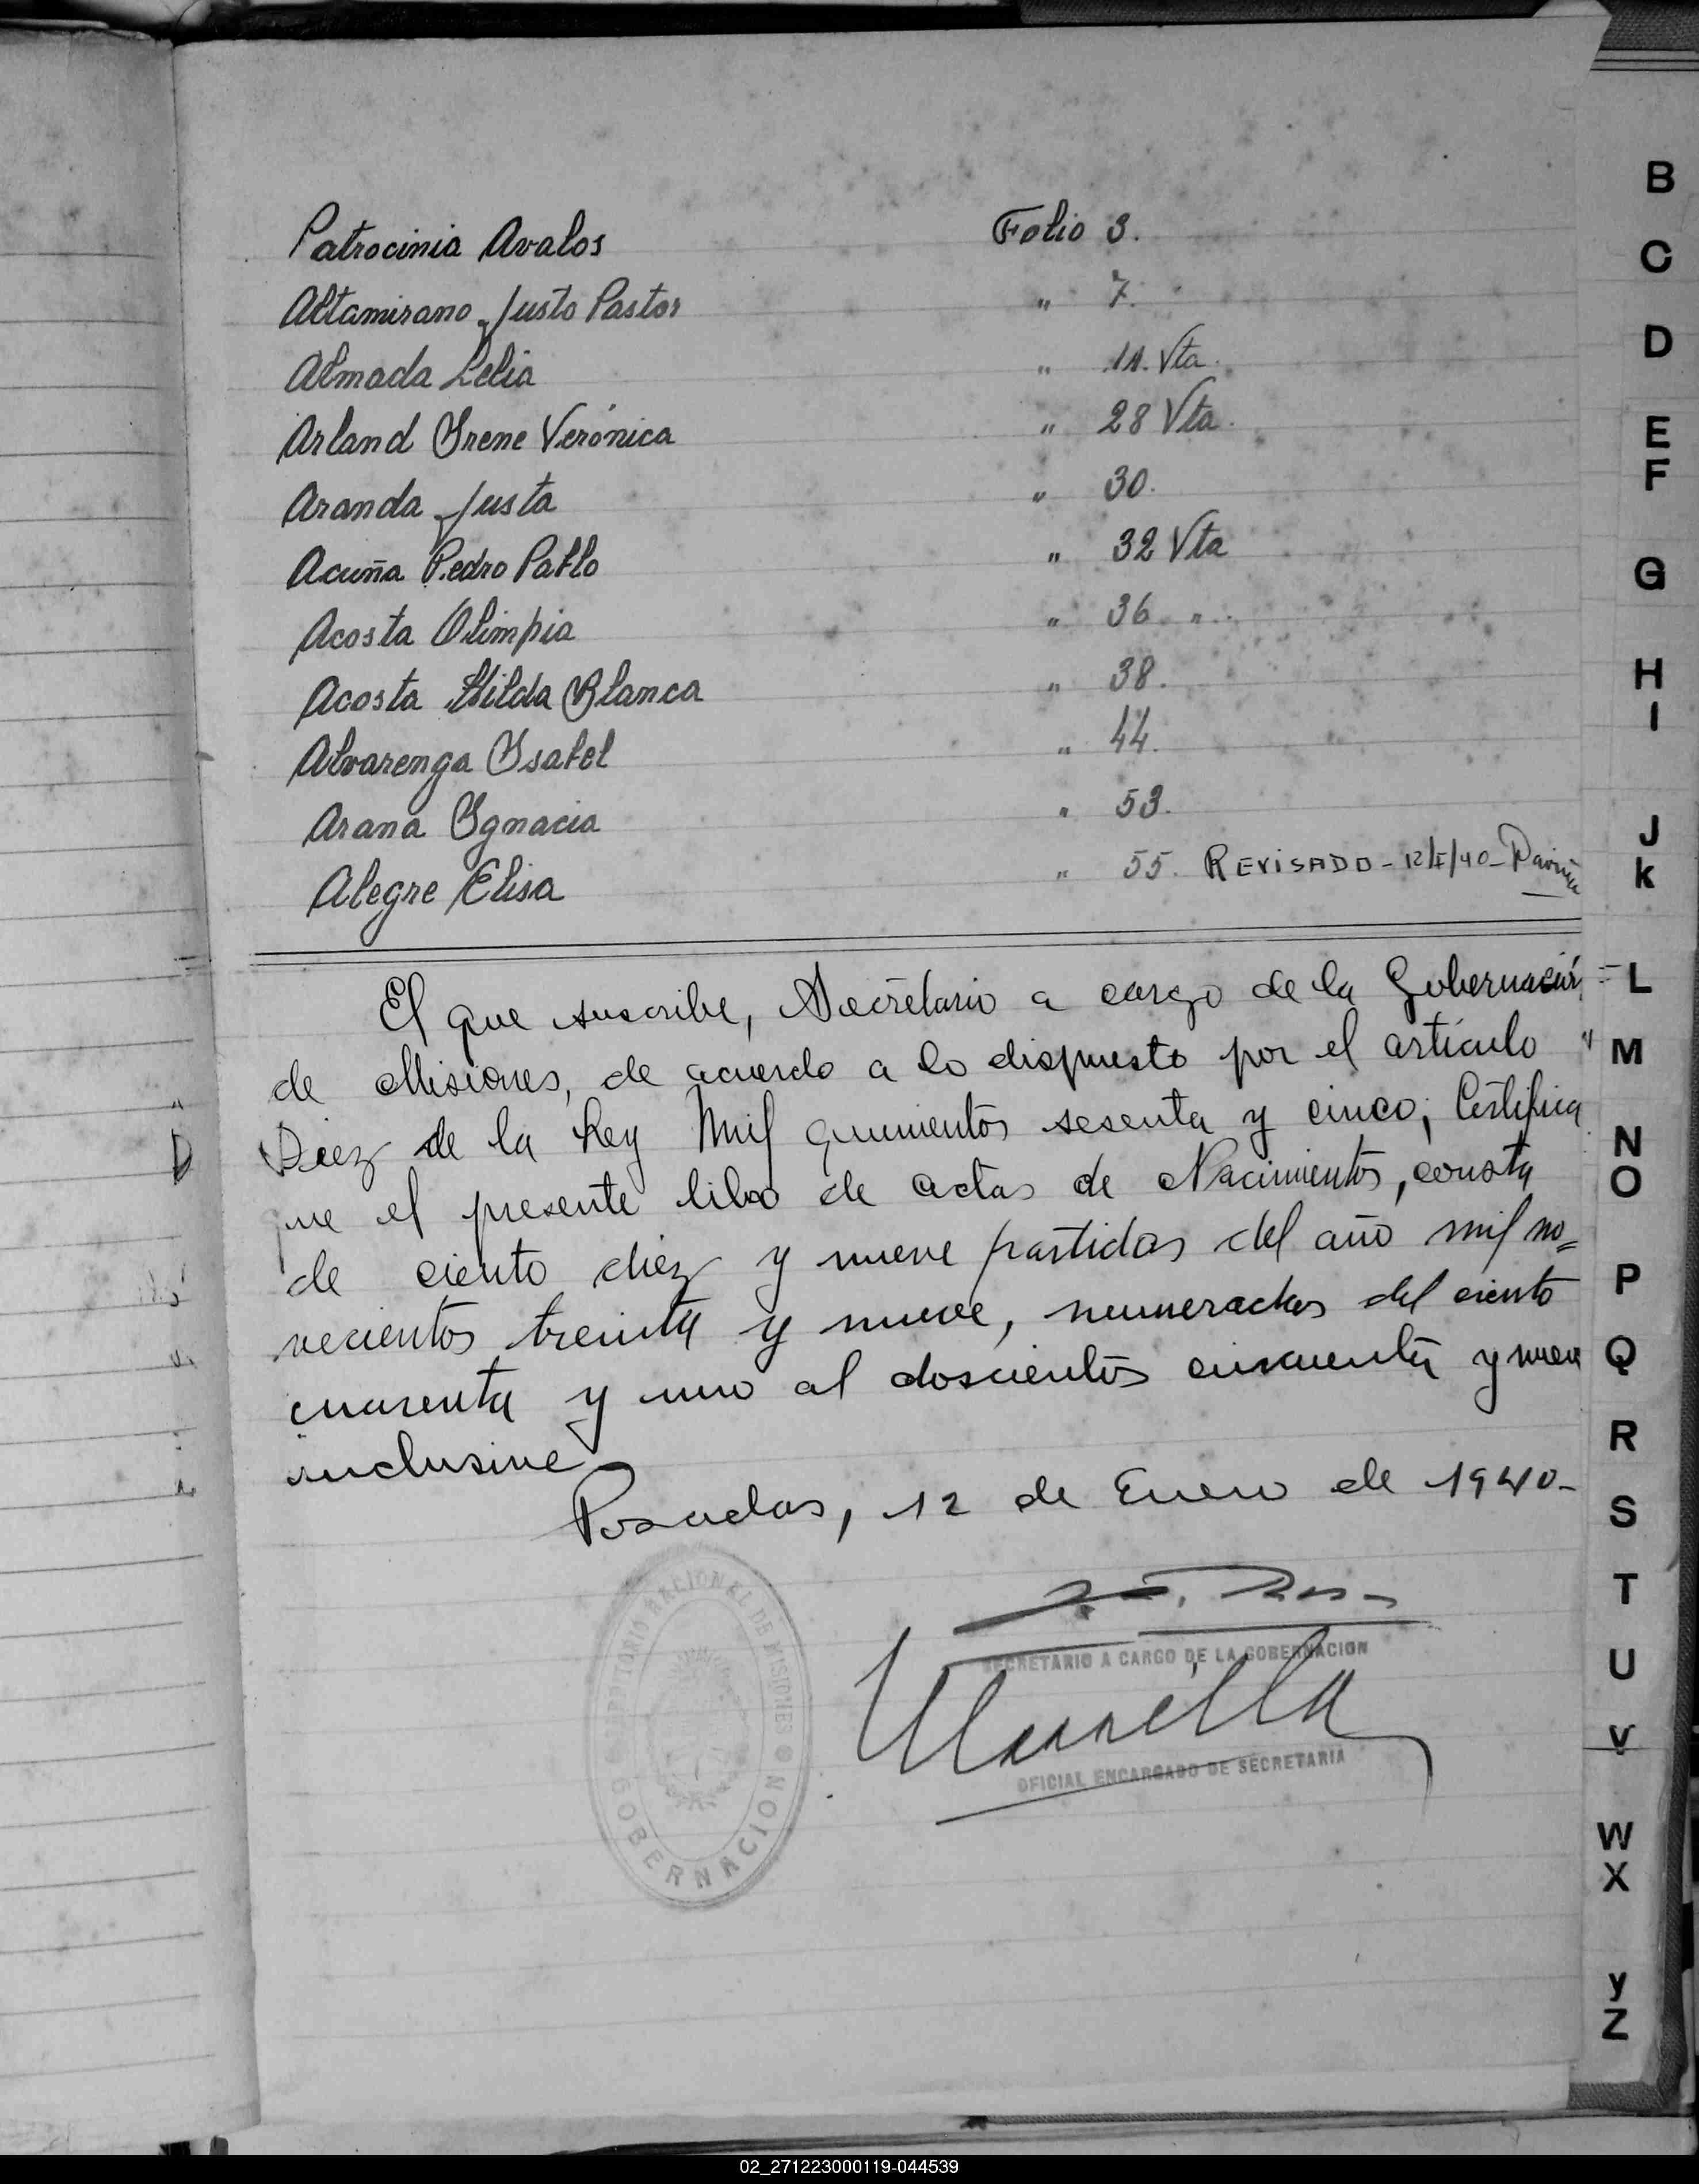 Patrocinia Avalos Folio 3.
Altamirano Justo Pastor " 7.
Almada Lelia " 11. Vta.
Arland Irene Verónica " 28 Vta.
Aranda Justa " 30.
Acuña Pedro Pablo " 32 Vta
Acosta Olimpia " 36 " .
Acosta Hilda Blanca " 38.
Alvarenga Ysabel " 44.
Arana Ygnacia " 53.
Alegre Elisa " 55. REVISADO - 12/I/40 -
El que suscribe, Secretario a cargo de la Gobernación
de Misiones, de acuerdo a lo dispuesto por el artículo
Diez de la Ley Mil quinientos sesenta y cinco; Certifica
que el presente libro de actas de Nacimientos, consta
de ciento diez y nueve partidas del año mil no=
vecientos treinta y nueve, numeradas del ciento
cuarenta y uno al doscientos cincuenta y nueve
inclusive
Posadas, 12 de Enero de 1940-
SECRETARIO A CARGO DE LA GOBERNACION
OFICIAL ENCARGADO DE SECRETARIA
TERRITORIO NACIONAL DE MISIONES
GOBERNACION
B
C
D
E
F
G
H
I
J
k
L
M
N
O
P
Q
R
S
T
U
V
W
X
y
Z
02_271223000119-044539